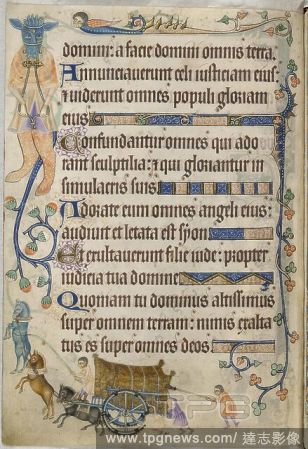 domini: a facie domini omnis terra.
Annunciaverunt celi iusticiam eius:
⁊ viderunt omnes populi gloriam
eius
Confundantur omnes qui ado
rant sculptilia: ⁊ qui gloriantur in
simulacris suis
Adorate eum omnes angeli eius:
audivit et letata est syon
Et exultaverunt filie iude: propter
iudicia tua domine
Quoniam tu dominus altissimus
super omnem terram: nimis exalta
tus es super omnes deos
TPG
www.tpgnews.com/ 達志影像